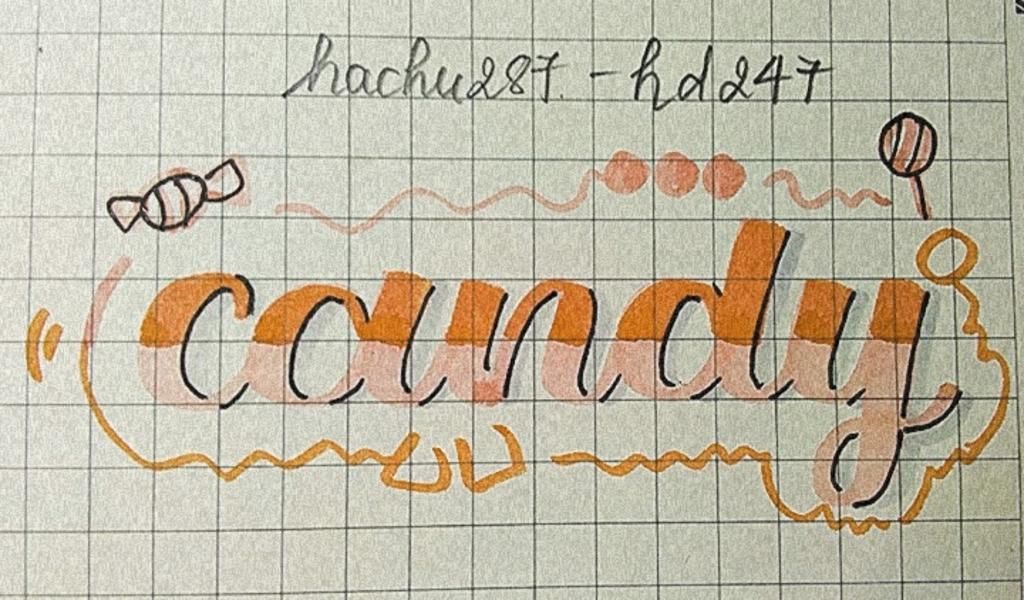 hachu287 - hd247
candy